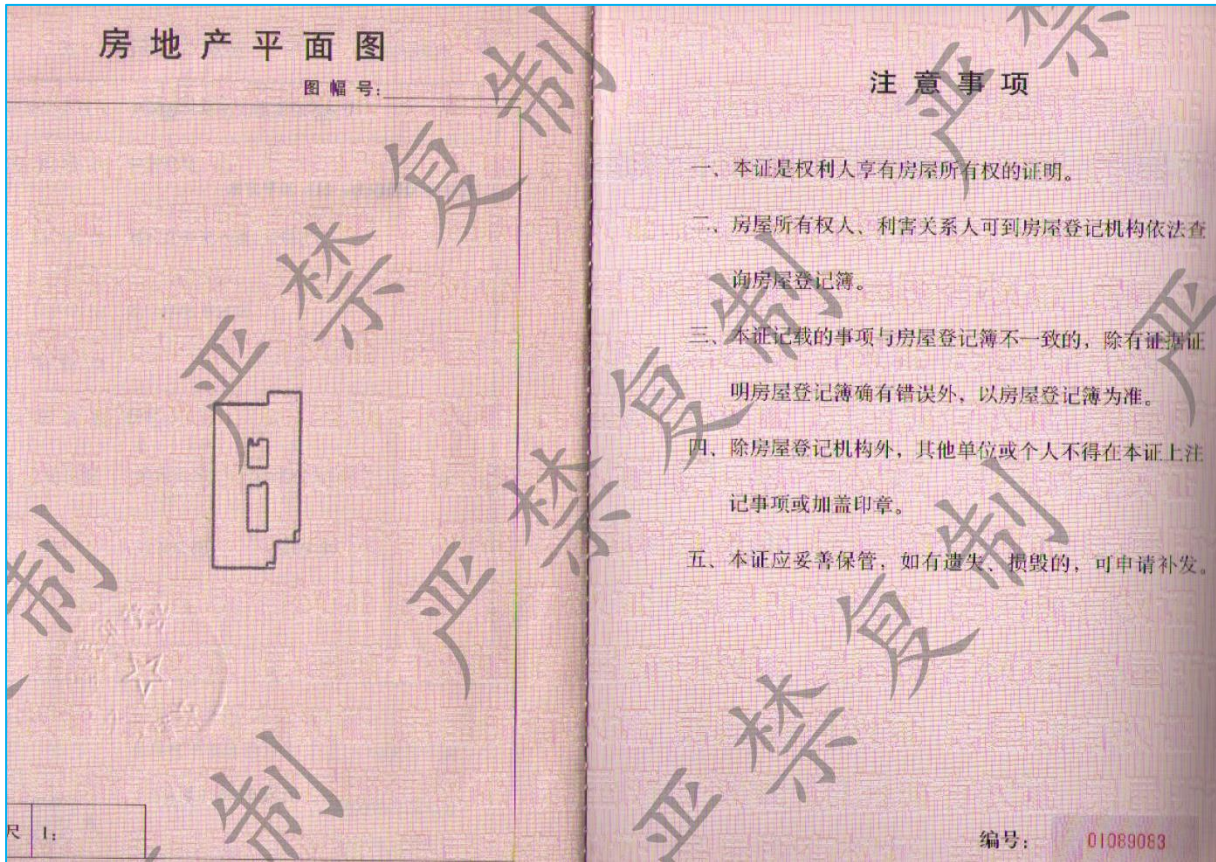 房地产平面图
图幅号:
尺 1:
注意事项
一、本证是权利人享有房屋所有权的证明。
二、房屋所有权人、利害关系人可到房屋登记机构依法查
询房屋登记簿。
三、本证记载的事项与房屋登记簿不一致的，除有证据证
明房屋登记簿确有错误外，以房屋登记簿为准。
四、除房屋登记机构外，其他单位或个人不得在本证上注
记事项或加盖印章。
五、本证应妥善保管，如有遗失、损毁的，可申请补发。
编号: 01089083
严禁复制
严禁复制
严禁复制
制
复制
严禁
严